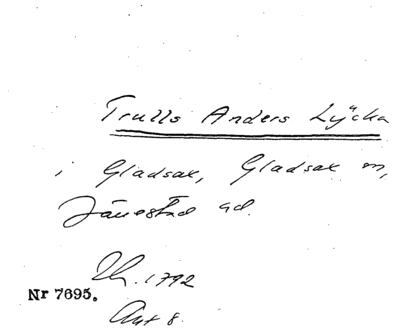 Trulls Anders Lÿcka
i Gladsax, Gladsax sn,
Järrestad hd.
1792
Nr 7695.
Akt 8.